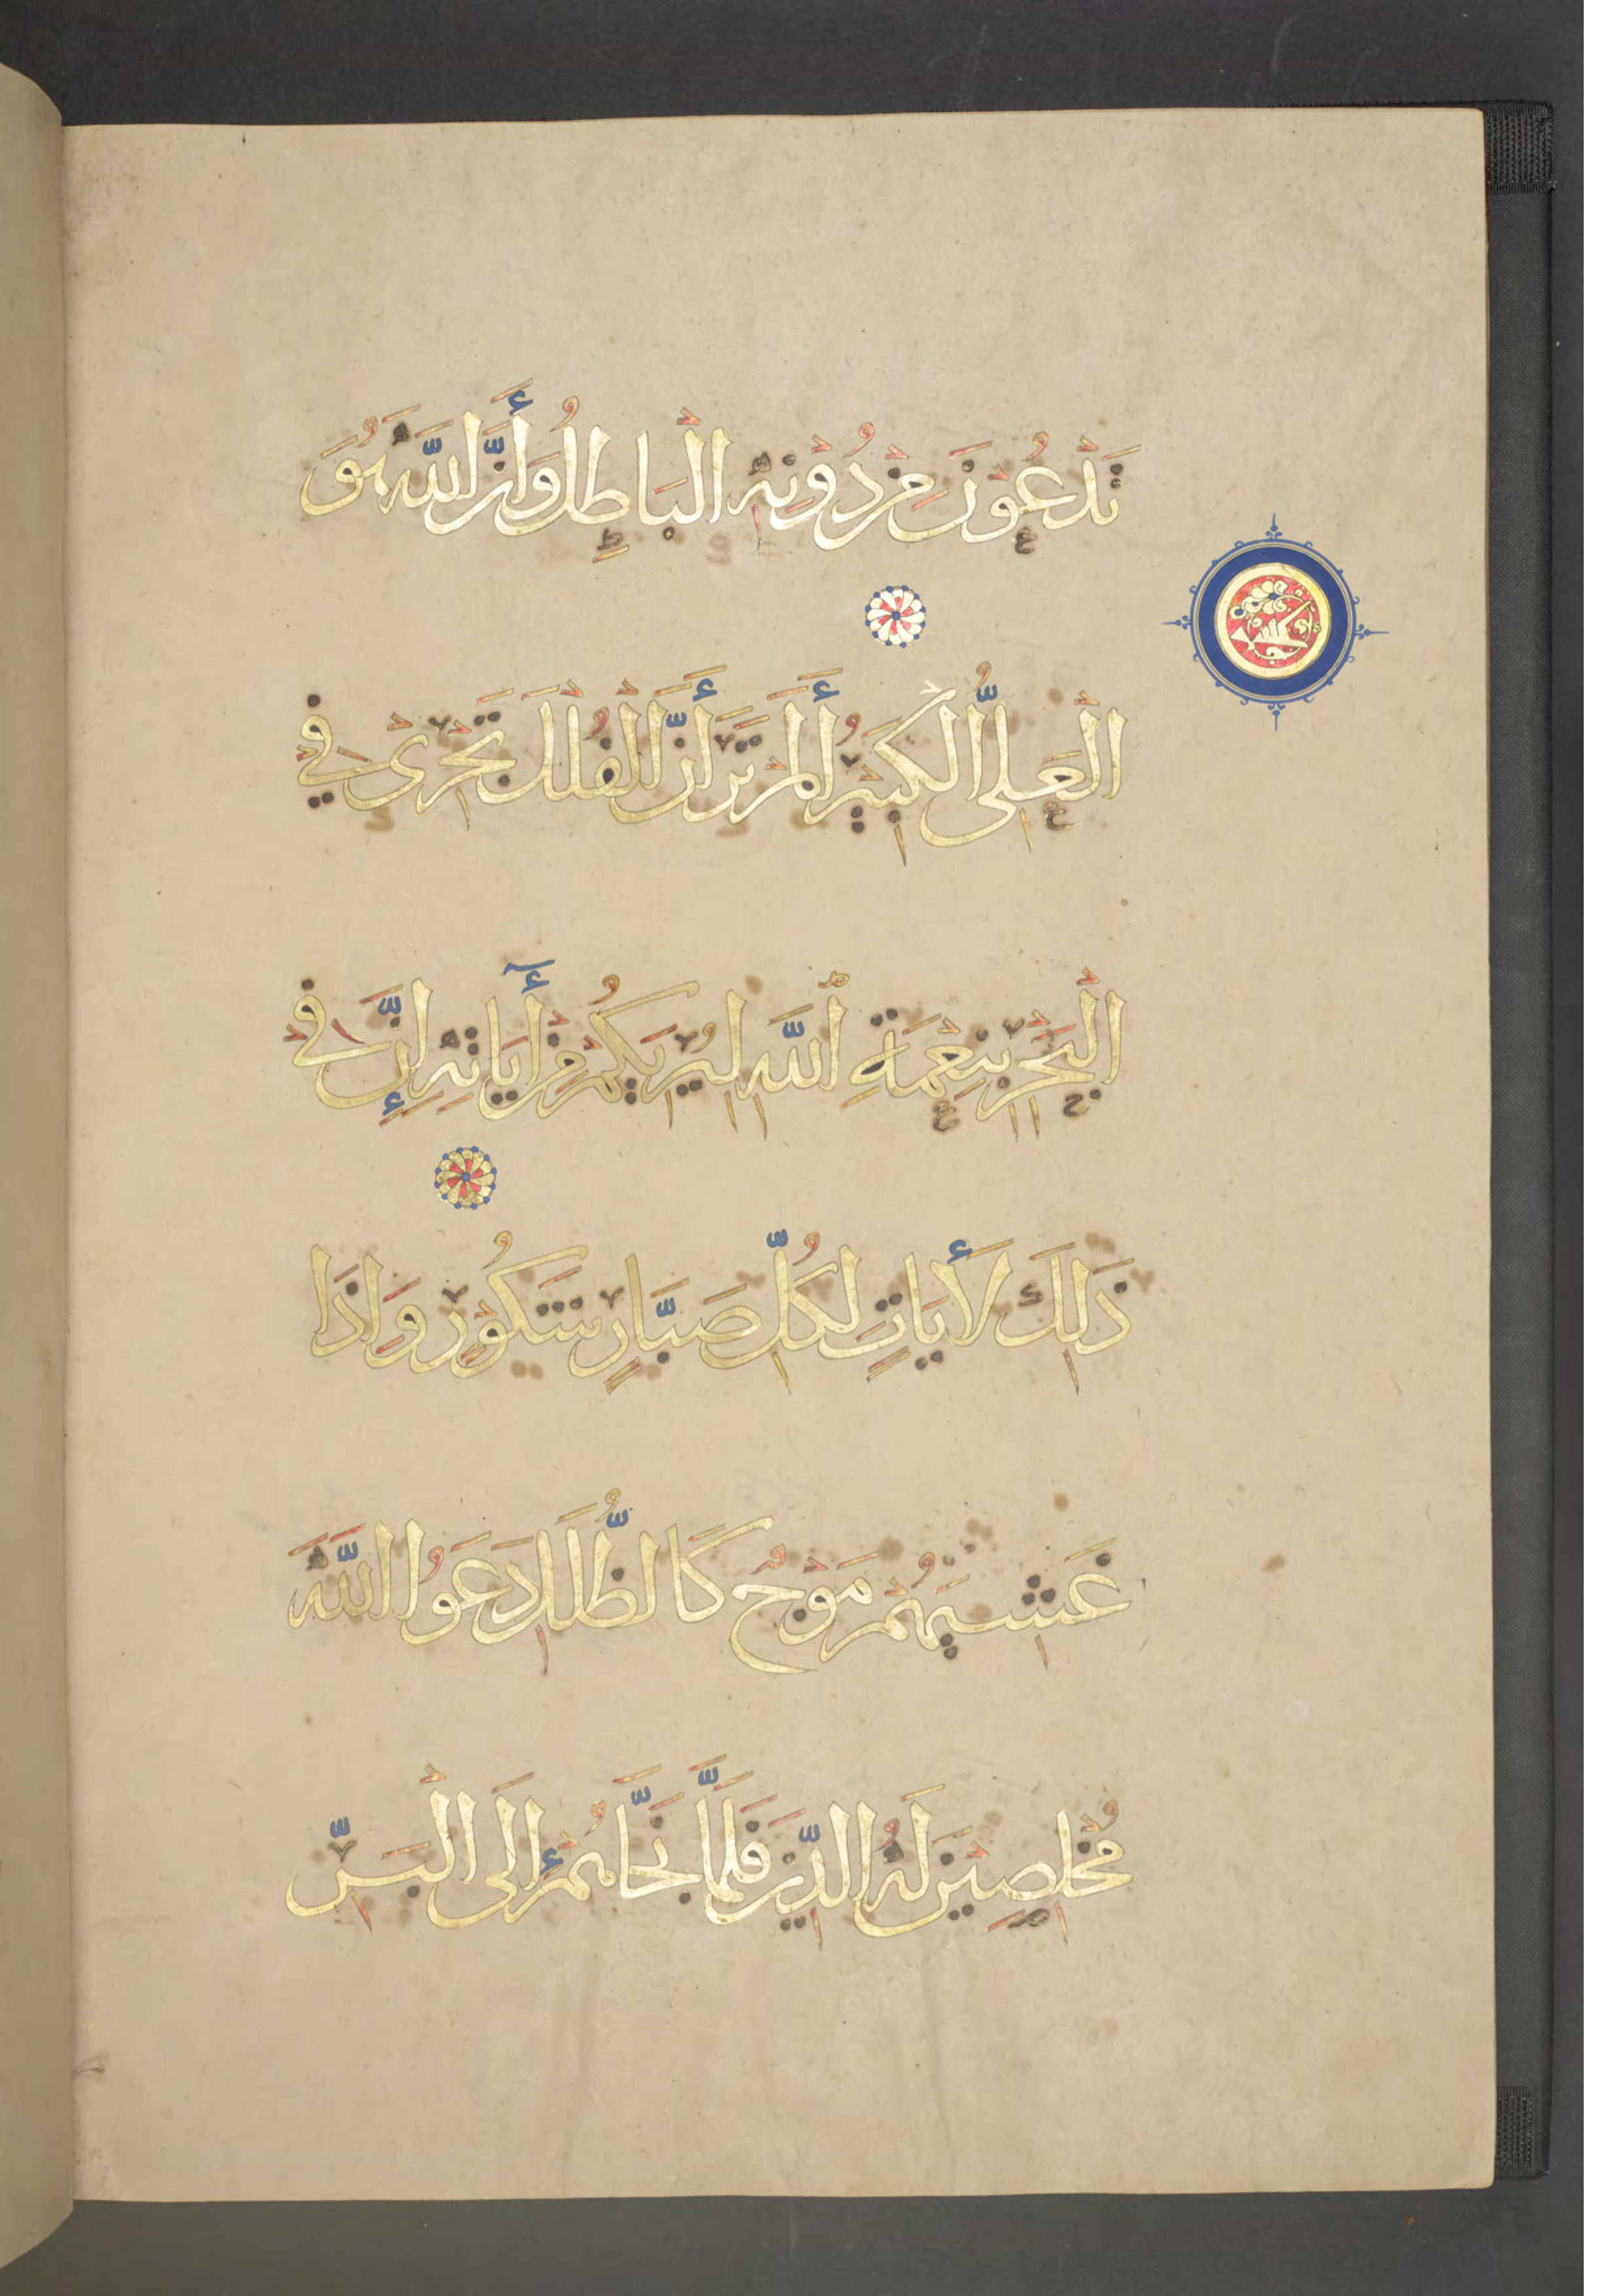 تَدْعُوْنَ مِنْ دُوْنِهِ الْبَاطِلُ وَأَنَّ اللَّهَ هُوَ
الْعَلِىُّ الْكَبِيْرُ أَلَمْ تَرَ أَنَّ الْفُلْكَ تَجْرِىْ فِيْ
الْبَحْرِ بِنِعْمَةِ ٱللَّهِ لِيُرِيَكُمْ مِنْ أٰيَاتِهِ إِنَّ فِيْ
ذَلِكَ لَأَيَاتٍ لِكُلِّ صَبَّارٍ شَكُوْرٍ وَاِذَا
غَشِيَهُمْ مَوْجٌ كَالظُّلَلِ دَعَوُا اللَّهَ
مُخْلِصِيْنَ لَهُ الدِّيْنَ فَلَمَّا نَجَّاهُمْ إِلَى الْبَرِّ